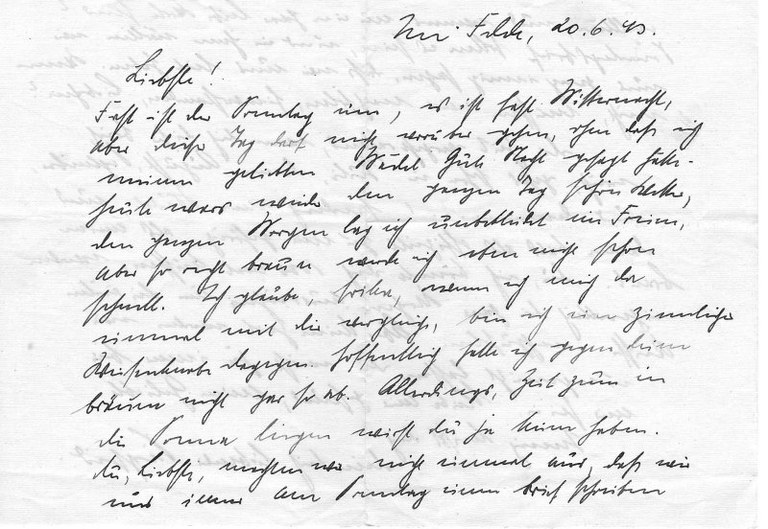 Im Felde, 20.6.43.
Liebste!
Fast ist der Sonntag um, es ist fast Mitternacht,
aber dieser Tag darf nicht vorüber gehen, ohne dass ich
meinem geliebten Mädel Gute Nacht gesagt hätte.
Heute wars wieder den ganzen Tag schön Wetter,
den ganzen Morgen lag ich unbekleidet im Freien,
aber so recht braun werde ich eben nicht schon
schnell. Ich glaube, wenn ich mich da
einmal mit dir vergleiche, bin ich ein ziemlicher
Waisenknabe dagegen. Hoffentlich falle ich gegen deine
bräune nicht gar so ab. Allerdings, Zeit zum in
die Sonne liegen wirst du ja kaum haben.
du, Liebste, machten wir nicht einmal aus, dass wir
uns immer am Sonntag einen Brief schreiben